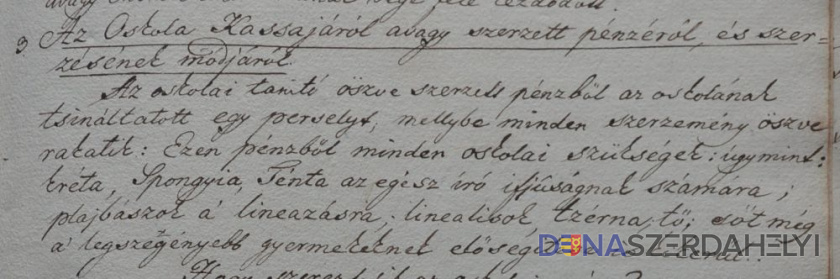 3 Az Oskola Kassajáról avagy szerzett pénzéről, és szer=
zésének módjáról.
Az oskolai tanitó öszve szerzett pénzből az oskolának
tsináltatott egy perselyt, mellybe minden szerzemény öszve
rakatik: Ezen pénzből minden oskolai szükséget: úgymint:
kréta, Spongyia, Ténta az egész író ifjúságnak számara;
plajbászok á lineazásra, linealisok, tzérna, tő; sőt még
a' legszegényebb gyermekeknek
DUNASZERDAHELYI